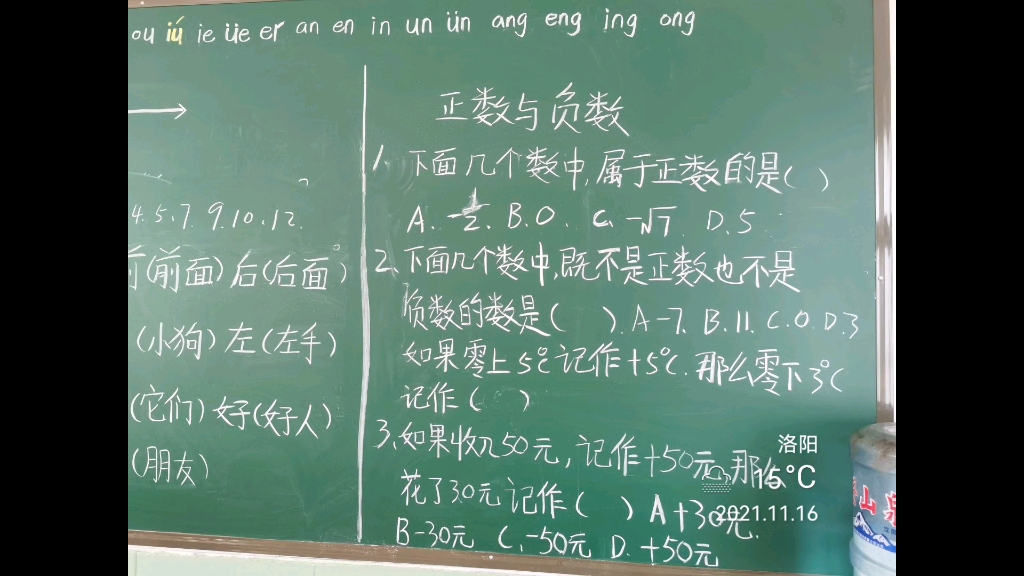 ou iú ie üe er an en in un ün ang eng ing ong
4.5.7.9.10.12.
(前面)后(后面)
(小狗)左(左手)
(它们)好(好人)
(朋友)
正数与负数
1、下面几个数中,属于正数的是( )
A.-1/2. B.0. C.-√7. D.5
2、下面几个数中,既不是正数也不是
负数的数是( ).A-7. B.11. C.0.D.3
如果零上5℃记作+5℃.那么零下3℃
记作( )
3、如果收入50元,记作+50元,那么
花了30元记作( ) A+30元.
B-30元 C.-50元 D.+50元
洛阳
15°C
2021.11.16
山泉